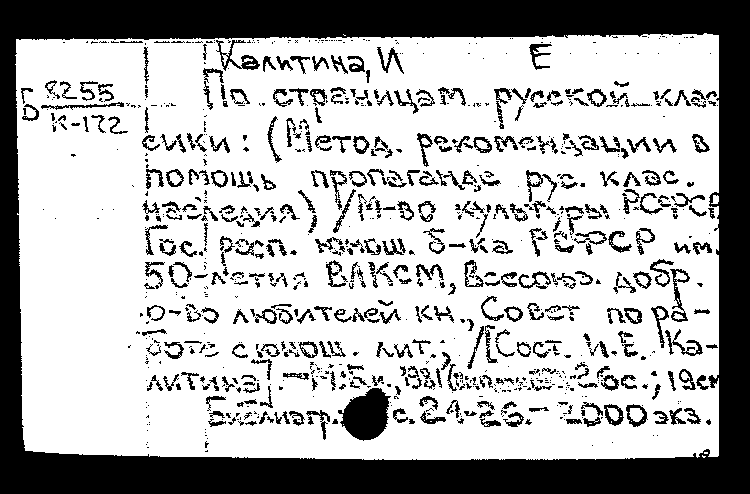 Калитина, И Е
Б 8255
К-172
По страницам русской клас
сики: (Метод. рекомендации в
помощь пропаганде рус. клас.
наследия) / М-во культуры РСФСР
Гос. респ. юнош. б-ка РСФСР им.
50-летия ВЛКСМ, Всесоюз. добр.
о-во любителей кн., Совет по ра-
боте с юнош. лит.; / [Сост. И.Е. Ка-
литина]. - М: Б.и., 1981 26с.; 19см
Библиогр.: с. 24-26. - 2000 экз.